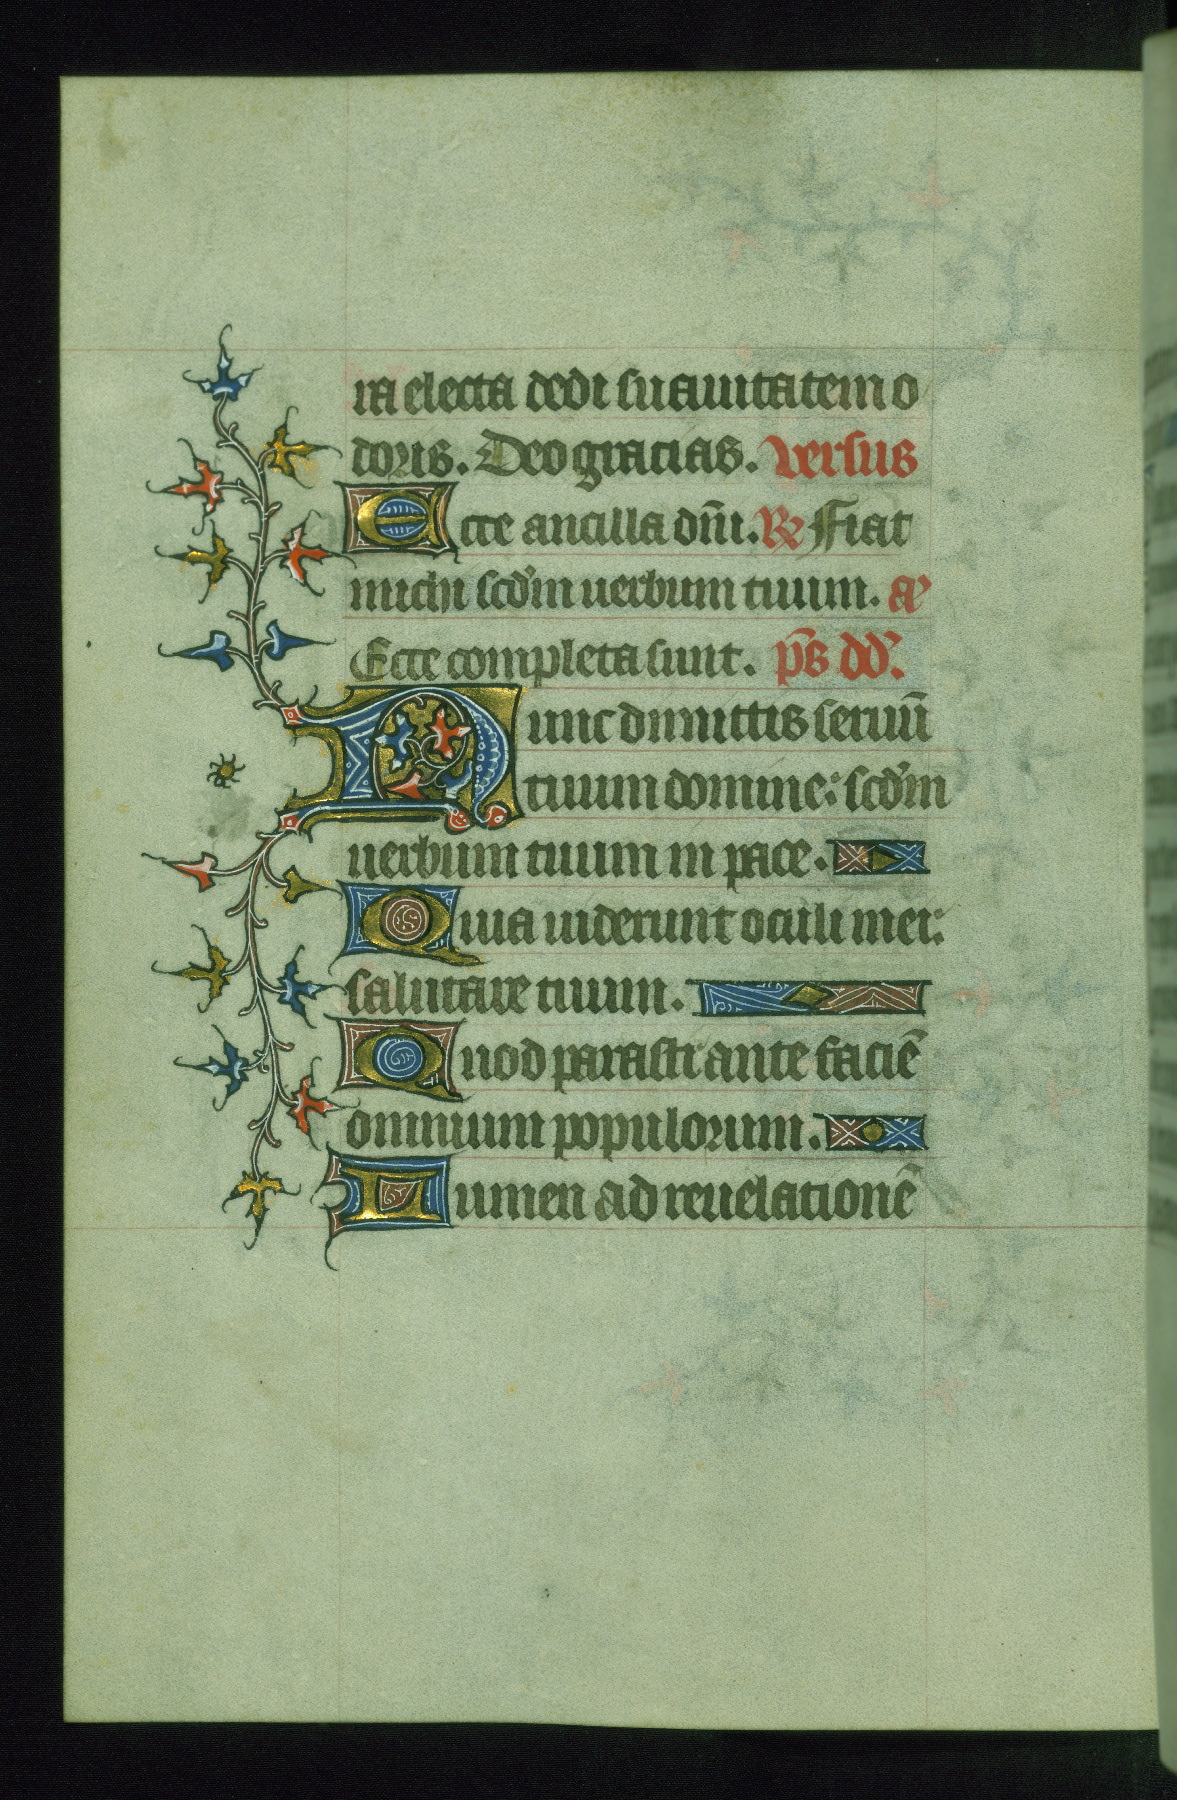 ra electa dedi suauitatem o
doris. Deo gracias. versus
Ecce ancilla dn̄i. R̷ Fiat
michi scd̕m uerbum tuum. an̕
Ecce completa sunt. p̄s dd̕.
Nunc dimittis seruū
tuum domine: scd̕m
uerbum tuum in pace.
Quia uiderunt oculi mei:
salutare tuum.
Quod parasti ante faciē
omnium populorum.
Lumen ad reuelationē